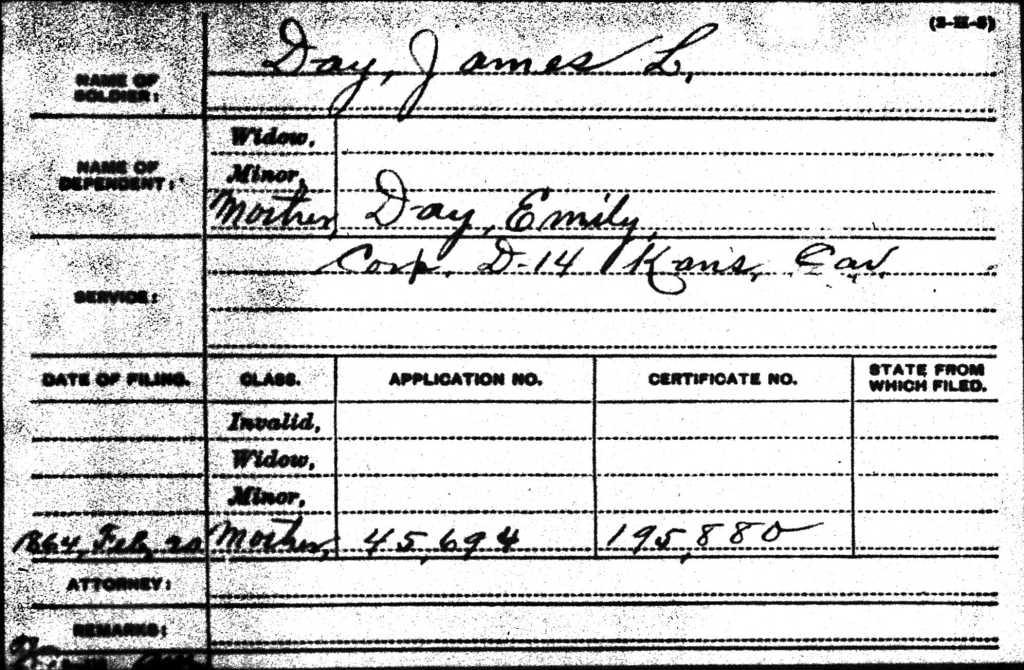 (3-H-5)
NAME OF SOLDIER: Day, James L.
NAME OF DEPENDENT:
Widow,
Minor,
Mother, Day, Emily,
SERVICE: Corp. D-14 Kans. Cav.
DATE OF FILING. CLASS. APPLICATION NO. CERTIFICATE NO. STATE FROM WHICH FILED.
Invalid,
Widow,
Minor,
1864, Feb, 20 Mother, 45,694 195,880
ATTORNEY:
REMARKS: